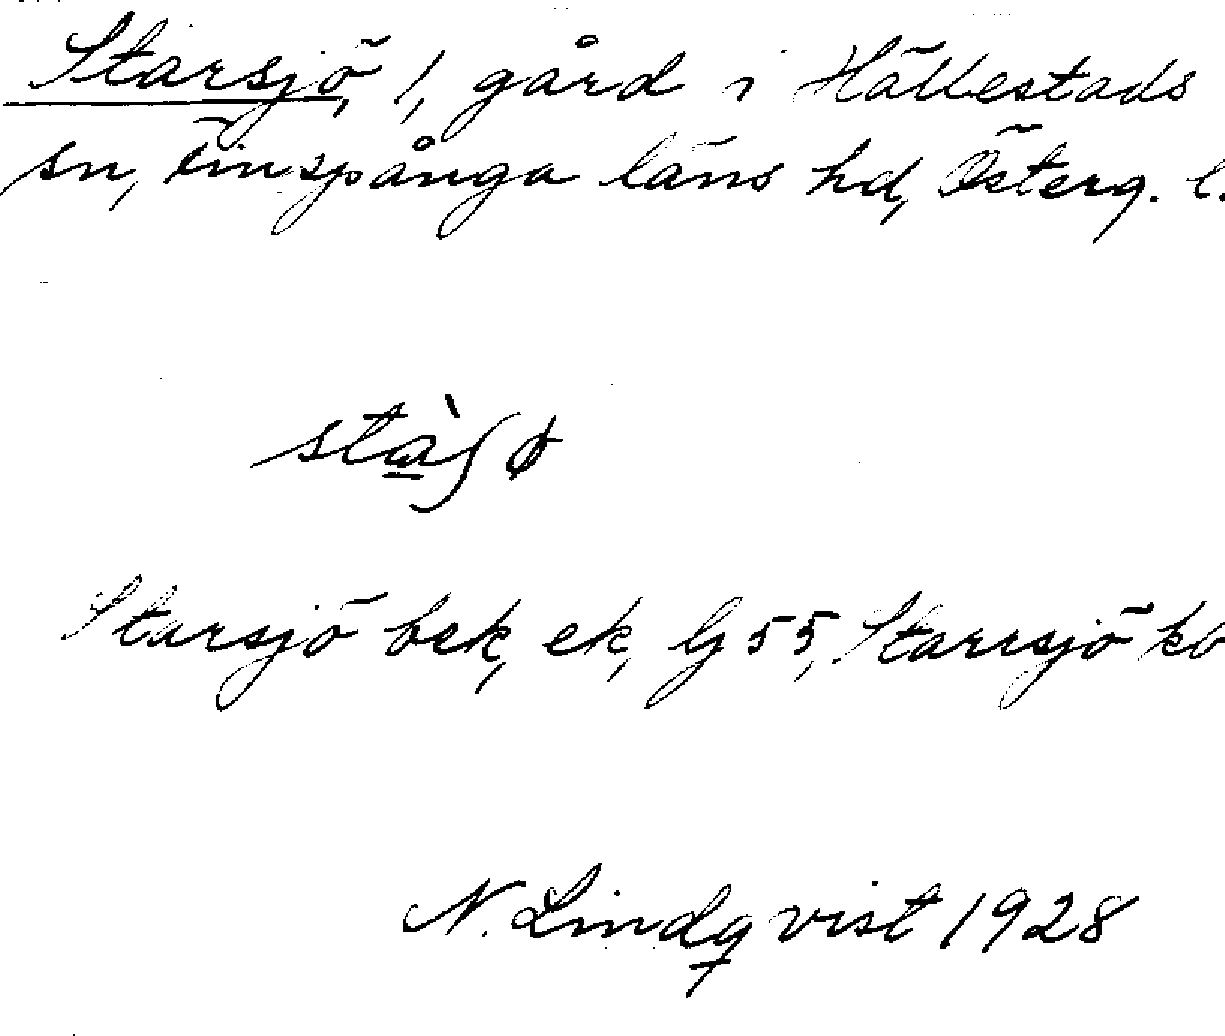 Starsjö, 1, gård i Hällestads
sn, Finspånga läns hd, Österg. l.
stàʃø
Starsjö bek, ek, Gj 55, Starrsjö kb
N. Lindqvist 1928